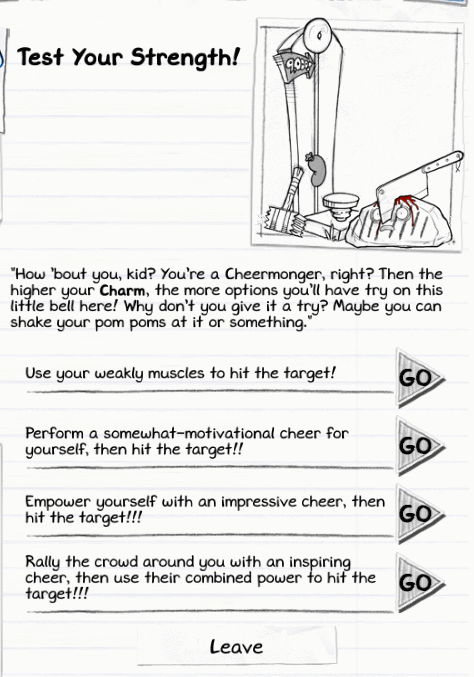 Test Your Strength!
"How 'bout you, kid? You're a Cheermonger, right? Then the
higher your Charm, the more options you'll have try on this
little bell here! Why don't you give it a try? Maybe you can
shake your pom poms at it or something."
Use your weakly muscles to hit the target!
GO
Perform a somewhat-motivational cheer for
yourself, then hit the target!!
GO
Empower yourself with an impressive cheer, then
hit the target!!!
GO
Rally the crowd around you with an inspiring
cheer, then use their combined power to hit the
target!!!
GO
Leave